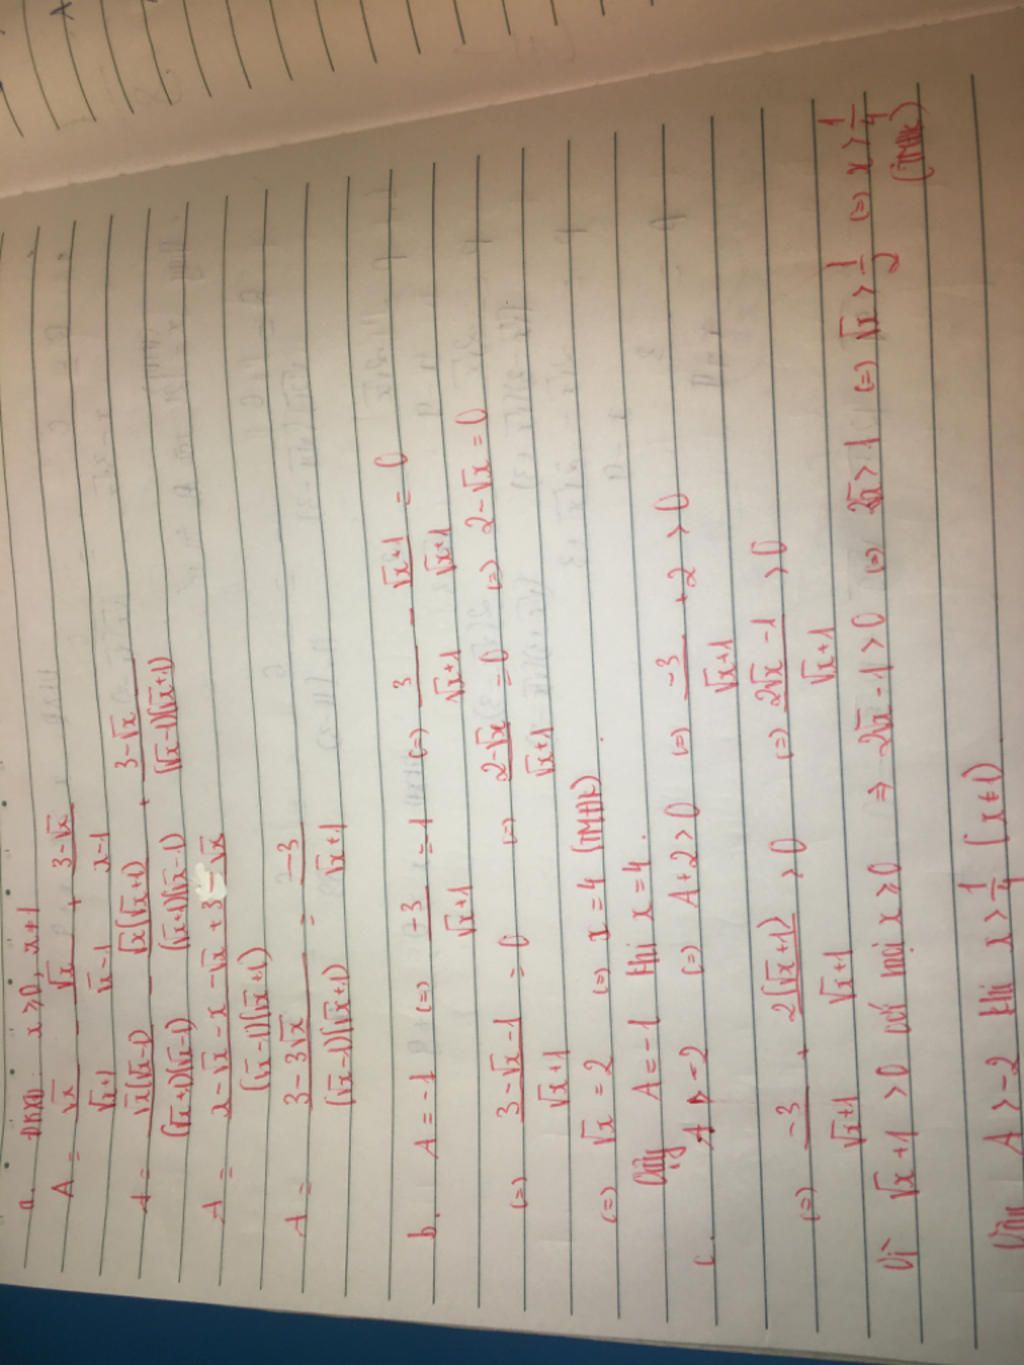 a. ĐKXĐ: x ≥ 0, x ≠ 1
A = √x/(√x+1) - √x/(√x-1) + (3-√x)/(x-1)
A = √x(√x-1)/((√x+1)(√x-1)) - √x(√x+1)/((√x+1)(√x-1)) + (3-√x)/((√x-1)(√x+1))
A = (x-√x-x-√x+3-√x)/((√x-1)(√x+1))
A = (3-3√x)/((√x-1)(√x+1)) = -3/(√x+1)
b. A = -1 (=) -3/(√x+1) = -1 (=) 3/(√x+1) - (√x+1)/(√x+1) = 0
(=) (3-√x-1)/(√x+1) = 0 (=) (2-√x)/(√x+1) = 0 (=) 2-√x = 0
(=) √x = 2 (=) x = 4 (TMĐK)
Vậy A = -1 khi x = 4.
c. A > -2 (=) A+2 > 0 (=) -3/(√x+1) + 2 > 0
(=) -3/(√x+1) + 2(√x+1)/(√x+1) > 0 (=) (2√x-1)/(√x+1) > 0
Vì √x+1 > 0 với mọi x ≥ 0 => 2√x-1 > 0 (=) 2√x > 1 (=) √x > 1/2 (=) x > 1/4
(TMĐK)
Vậy A > -2 khi x > 1/4 (x≠1)